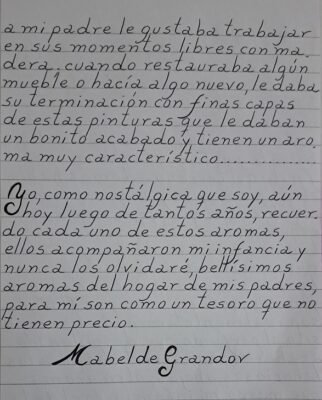 a mi padre le gustaba trabajar
en sus momentos libres con ma.
dera. cuando restauraba algún
mueble o hacía algo nuevo, le daba
su terminación con finas capas
de estas pinturas que le daban
un bonito acabado y tienen un aro.
ma muy característico..............
Yo, como nostálgica que soy, aún
hoy luego de tantos años, recuer.
do cada uno de estos aromas,
ellos acompañaron mi infancia y
nunca los olvidaré, bellísimos
aromas del hogar de mis padres,
para mí son como un tesoro que no
tienen precio.
Mabel de Grandov